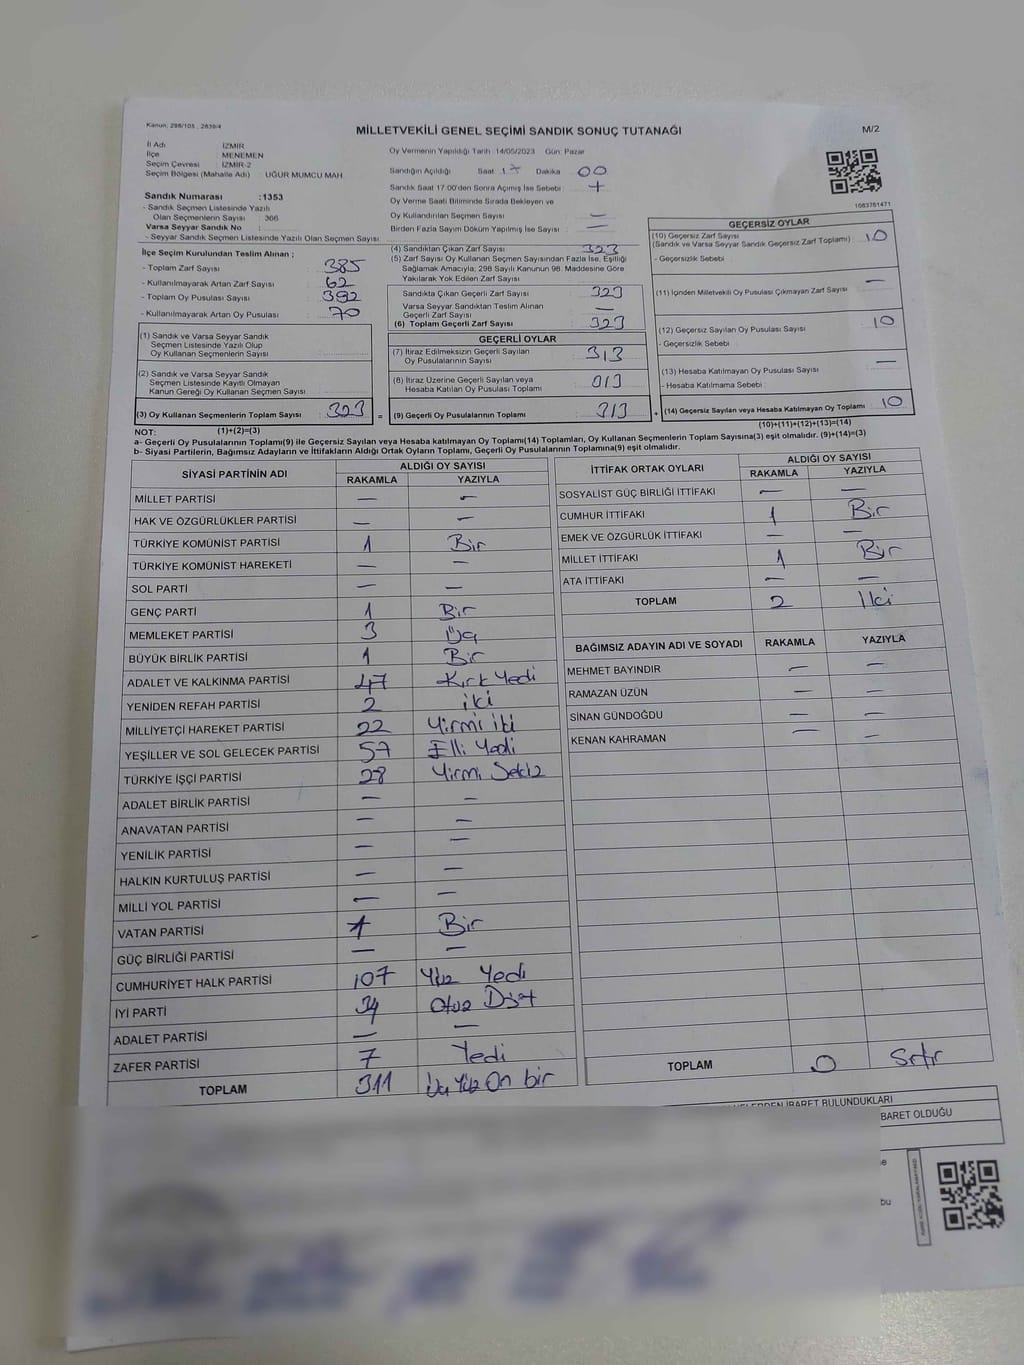 Kanun: 298/105 , 2839/4
MİLLETVEKİLİ GENEL SEÇİMİ SANDIK SONUÇ TUTANAĞI
M/2
İl Adı : İZMİR
İlçe : MENEMEN
Seçim Çevresi : İZMİR-2
Seçim Bölgesi (Mahalle Adı) : UĞUR MUMCU MAH.
Oy Vermenin Yapıldığı Tarih :14/05/2023 Gün: Pazar
Sandığın Açıldığı Saat : 17 Dakika : 00
Sandık Saat 17:00'den Sonra Açılmış İse Sebebi : +
Oy Verme Saati Bitiminde Sırada Bekleyen ve
Oy Kullandırılan Seçmen Sayısı : —
Birden Fazla Sayım Döküm Yapılmış İse Sayısı : —
1083761471
Sandık Numarası :1353
- Sandık Seçmen Listesinde Yazılı
Olan Seçmenlerin Sayısı : 366
Varsa Seyyar Sandık No :
- Seyyar Sandık Seçmen Listesinde Yazılı Olan Seçmen Sayısı :
İlçe Seçim Kurulundan Teslim Alınan ;
- Toplam Zarf Sayısı : 385
- Kullanılmayarak Artan Zarf Sayısı : 62
- Toplam Oy Pusulası Sayısı : 392
- Kullanılmayarak Artan Oy Pusulası : 70
(1) Sandık ve Varsa Seyyar Sandık
Seçmen Listesinde Yazılı Olup
Oy Kullanan Seçmenlerin Sayısı :
(2) Sandık ve Varsa Seyyar Sandık
Seçmen Listesinde Kayıtlı Olmayan
Kanun Gereği Oy Kullanan Seçmen Sayısı :
(3) Oy Kullanan Seçmenlerin Toplam Sayısı : 323 =
(1)+(2)=(3)
(4) Sandıktan Çıkan Zarf Sayısı : 323
(5) Zarf Sayısı Oy Kullanan Seçmen Sayısından Fazla İse, Eşitliği
Sağlamak Amacıyla; 298 Sayılı Kanunun 98. Maddesine Göre
Yakılarak Yok Edilen Zarf Sayısı :
Sandıkta Çıkan Geçerli Zarf Sayısı : 323
Varsa Seyyar Sandıktan Teslim Alınan
Geçerli Zarf Sayısı : —
(6) Toplam Geçerli Zarf Sayısı : 323
GEÇERLİ OYLAR
(7) İtiraz Edilmeksizin Geçerli Sayılan
Oy Pusulalarının Sayısı : 313
(8) İtiraz Üzerine Geçerli Sayılan veya
Hesaba Katılan Oy Pusulası Toplamı :
(9) Geçerli Oy Pusulalarının Toplamı : 313 +
GEÇERSİZ OYLAR
(10) Geçersiz Zarf Sayısı
(Sandık ve Varsa Seyyar Sandık Geçersiz Zarf Toplamı) : 10
- Geçersizlik Sebebi :
(11) İçinden Milletvekili Oy Pusulası Çıkmayan Zarf Sayısı : —
(12) Geçersiz Sayılan Oy Pusulası Sayısı : 10
- Geçersizlik Sebebi :
(13) Hesaba Katılmayan Oy Pusulası Sayısı : —
- Hesaba Katılmama Sebebi :
(14) Geçersiz Sayılan veya Hesaba Katılmayan Oy Toplamı : 10
(10)+(11)+(12)+(13)=(14)
NOT:
a- Geçerli Oy Pusulalarının Toplamı(9) ile Geçersiz Sayılan veya Hesaba katılmayan Oy Toplamı(14) Toplamları, Oy Kullanan Seçmenlerin Toplam Sayısına(3) eşit olmalıdır. (9)+(14)=(3)
b- Siyasi Partilerin, Bağımsız Adayların ve İttifakların Aldığı Ortak Oyların Toplamı, Geçerli Oy Pusulalarının Toplamına(9) eşit olmalıdır.
SİYASİ PARTİNİN ADI ALDIĞI OY SAYISI
RAKAMLA YAZIYLA
MİLLET PARTİSİ — —
HAK VE ÖZGÜRLÜKLER PARTİSİ — —
TÜRKİYE KOMÜNİST PARTİSİ 1 Bir
TÜRKİYE KOMÜNİST HAREKETİ — —
SOL PARTİ — —
GENÇ PARTİ 1 Bir
MEMLEKET PARTİSİ 3 Üç
BÜYÜK BİRLİK PARTİSİ 1 Bir
ADALET VE KALKINMA PARTİSİ 47 Kırk Yedi
YENİDEN REFAH PARTİSİ 2 iki
MİLLİYETÇİ HAREKET PARTİSİ 22 Yirmi iki
YEŞİLLER VE SOL GELECEK PARTİSİ 57 Elli Yedi
TÜRKİYE İŞÇİ PARTİSİ 28 Yirmi Sekiz
ADALET BİRLİK PARTİSİ — —
ANAVATAN PARTİSİ — —
YENİLİK PARTİSİ — —
HALKIN KURTULUŞ PARTİSİ — —
MİLLİ YOL PARTİSİ — —
VATAN PARTİSİ 1 Bir
GÜÇ BİRLİĞİ PARTİSİ — —
CUMHURİYET HALK PARTİSİ 107 Yüz Yedi
İYİ PARTİ 34 Otuz Dört
ADALET PARTİSİ — —
ZAFER PARTİSİ 7 Yedi
TOPLAM 311 Üç Yüz On bir
İTTİFAK ORTAK OYLARI ALDIĞI OY SAYISI
RAKAMLA YAZIYLA
SOSYALİST GÜÇ BİRLİĞİ İTTİFAKI — —
CUMHUR İTTİFAKI 1 Bir
EMEK VE ÖZGÜRLÜK İTTİFAKI — —
MİLLET İTTİFAKI 1 Bir
ATA İTTİFAKI — —
TOPLAM 2 İki
BAĞIMSIZ ADAYIN ADI VE SOYADI RAKAMLA YAZIYLA
MEHMET BAYINDIR — —
RAMAZAN ÜZÜN — —
SİNAN GÜNDOĞDU — —
KENAN KAHRAMAN — —
TOPLAM 0 Sıfır
İBARET BULUNDUKLARI
BARET OLDUĞU